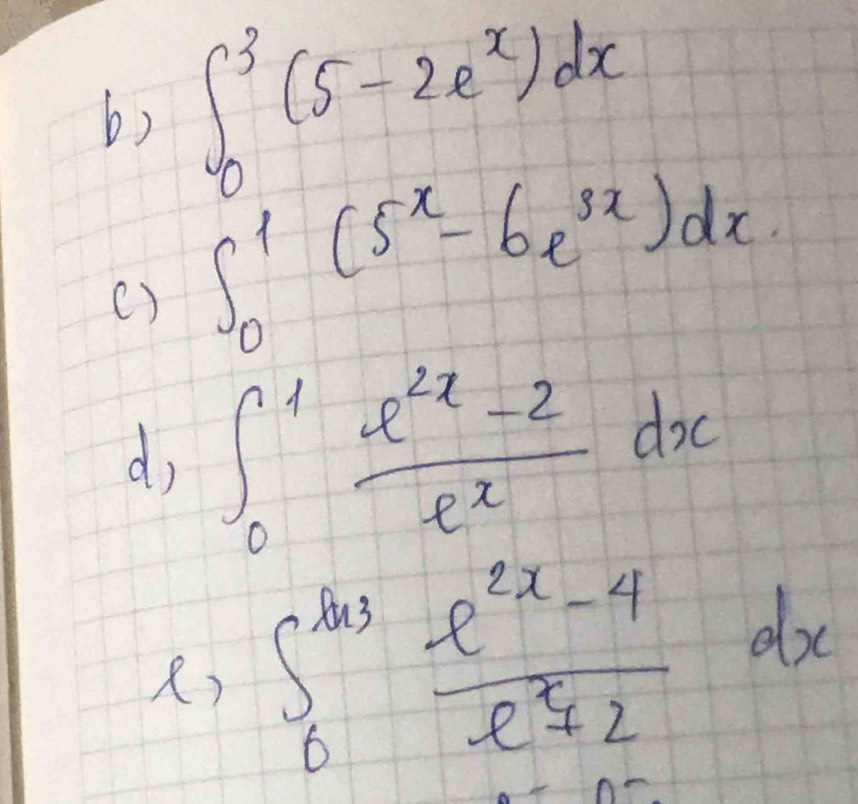 b) ∫₀³ (5 - 2eˣ) dx
c) ∫₀¹ (5ˣ - 6e³ˣ) dx.
d) ∫₀¹ (e²ˣ - 2)/(eˣ) dx
e) ∫₀^(ln3) (e²ˣ - 4)/(eˣ + 2) dx